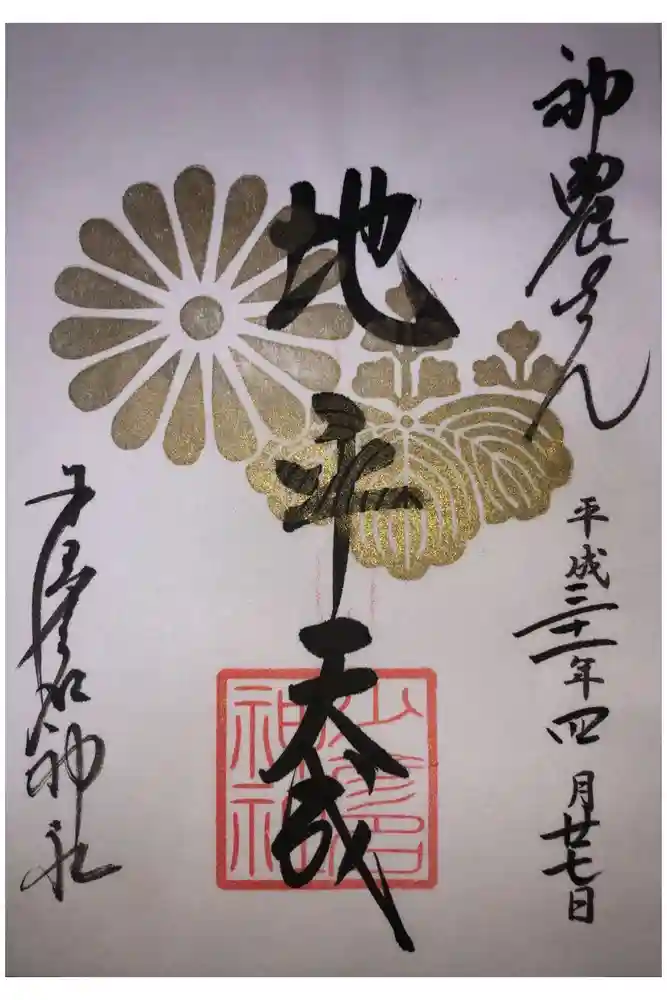 神農さん
平成三十一年四月廿七日
地平天成
少彦名
神社
少彦名神社